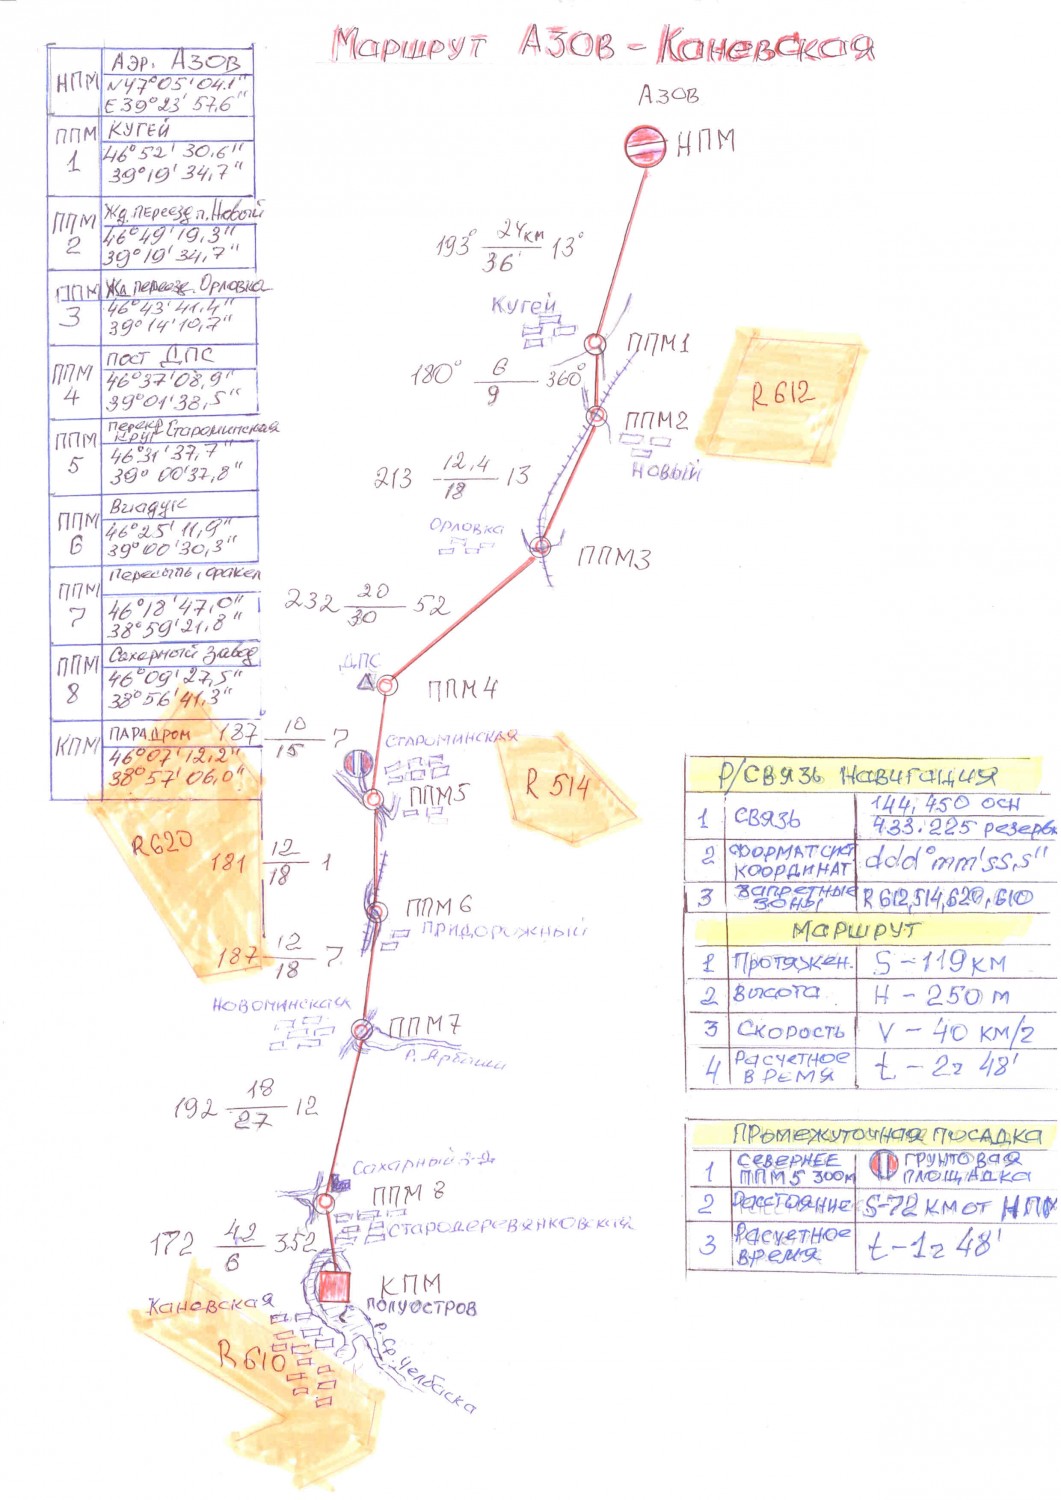 Маршрут АЗОВ - Каневская
НПМ
Аэр. АЗОВ
N47°05'04.1"
E 39°23'57,6"
ППМ 1
КУГЕЙ
46°52'30.6"
39°19'34,7"
ППМ 2
Жд. переезд п. Новый
46°49'19,3"
39°19'34,7"
ППМ 3
Жд переезд. Орловка
46°43'41,4"
39°14'10,7"
ППМ 4
пост ДПС
46°37'08,9"
39°01'38,5"
ППМ 5
Староминская
46°31'37,7"
39°00'37,8"
ППМ 6
Виадук
46°25'11,9"
39°00'30,3"
ППМ 7
Пересыпь,
46°18'47,0"
38°59'21,8"
ППМ 8
Сахарный завод
46°09'27,5"
38°56'41,3"
КПМ
ПАРАДРОМ
46°07'12,2"
38°57'06,0"
АЗОВ
НПМ
193° 24км 13°
36'
Кугей
ППМ1
180° 6 360°
9
R 612
ППМ2
НОВЫЙ
213 12,4 13
18
Орловка
ППМ3
232 20 52
30
ДПС
ППМ 4
187 10 7
15
СТАРОМИНСКАЯ
ППМ5
R 514
R620
181 12 1
18
ППМ 6
ПРИДОРОЖНЫЙ
187 12 7
18
НОВОМИНСКАЯ
ППМ7
192 18 12
27
Сахарный з-д
ППМ 8
Стародеревянковский
172 4,2 352
6
КПМ
ПОЛУОСТРОВ
Каневская
R 610
р. Ср. Челбаска
Р/СВЯЗЬ НАВИГАЦИЯ
1 СВЯЗЬ 144,450 осн
433.225 резерв
2 ФОРМАТ СИСТ КООРДИНАТ ddd°mm'ss,s"
3 ЗАПРЕТНЫЕ ЗОНЫ R 612,514,620,610
МАРШРУТ
1 Протяжен. S - 119 км
2 Высота H - 250 м
3 Скорость V - 40 км/г
4 Расчетное время t - 2г 48'
ПРОМЕЖУТОЧНАЯ ПОСАДКА
1 СЕВЕРНЕЕ ППМ5 300м ГРУНТОВАЯ ПЛОЩАДКА
2 Расстояние S-72 км от НПМ
3 Расчетное время t-1г 48'